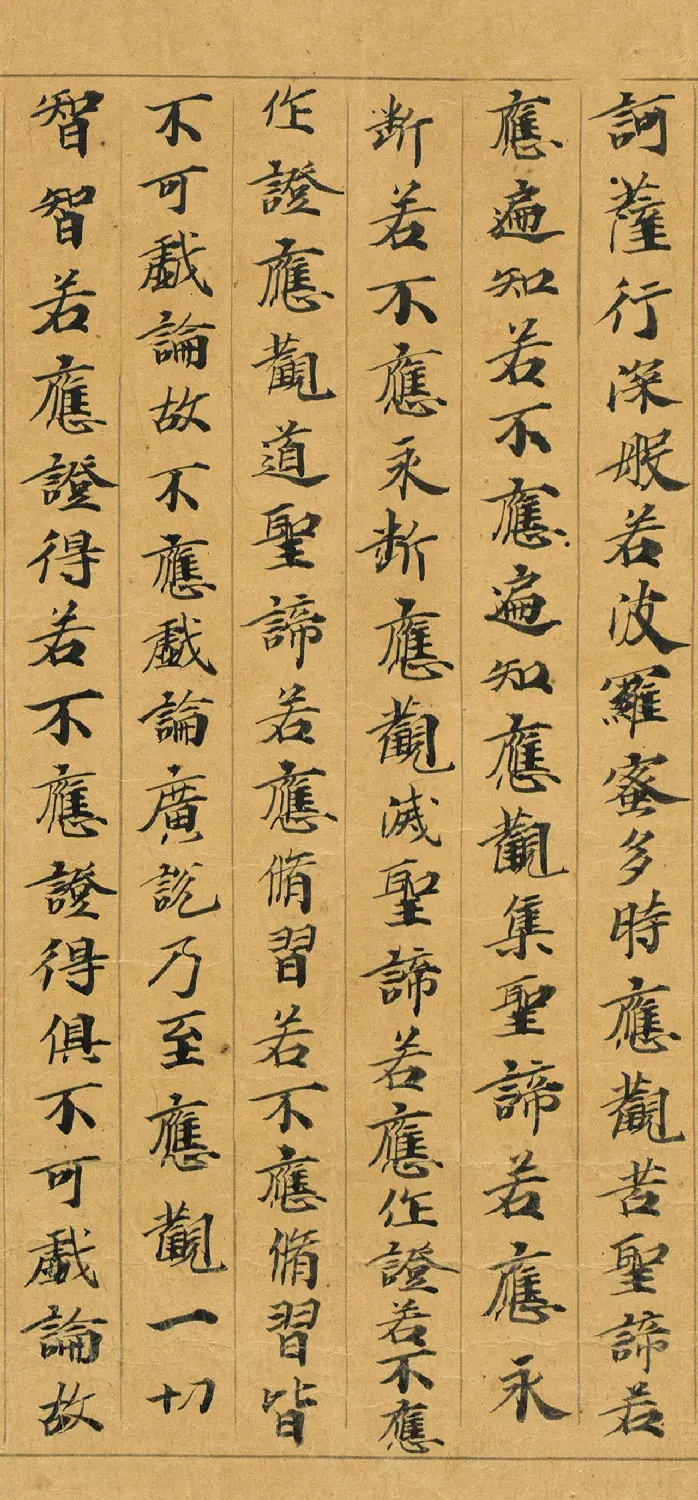 訶薩行深般若波羅蜜多時應觀苦聖諦若
應遍知若不應遍知應觀集聖諦若應永
斷若不應永斷應觀滅聖諦若應作證若不應
作證應觀道聖諦若應脩習若不應脩習皆
不可戲論故不應戲論廣說乃至應觀一切
智智若應證得若不應證得俱不可戲論故